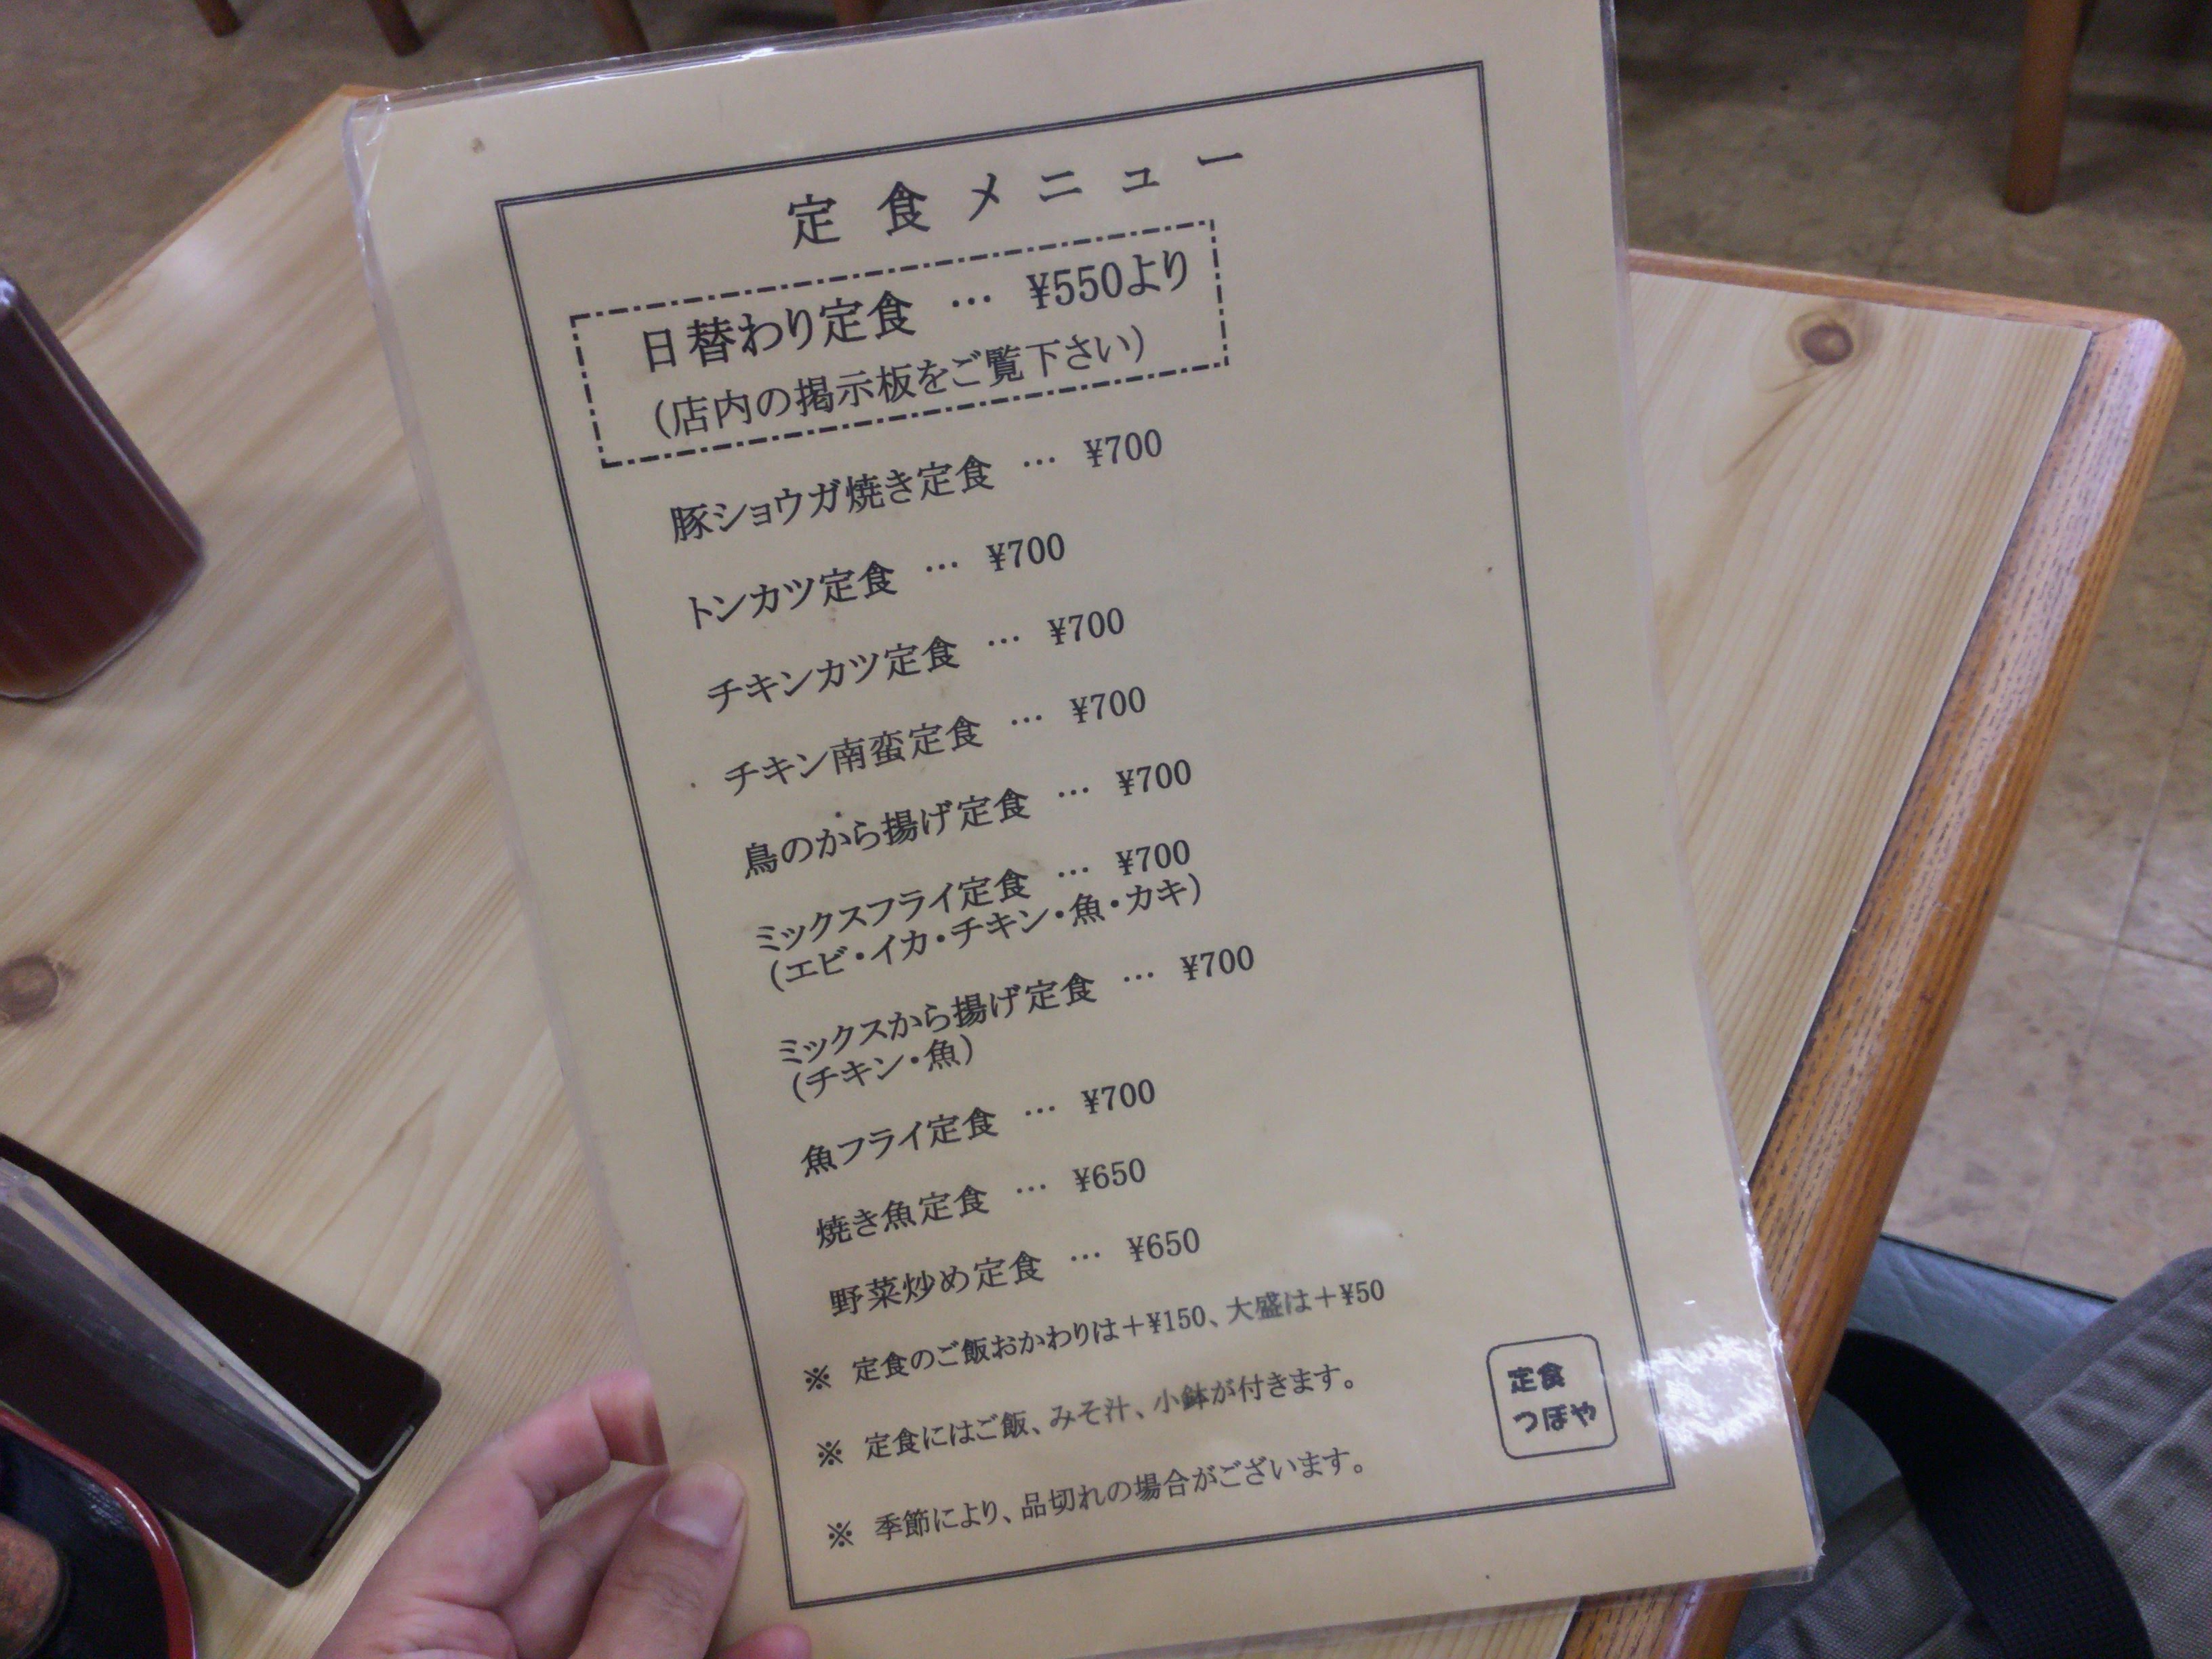 定食メニュー
日替わり定食 … ¥550より
(店内の掲示板をご覧下さい)
豚ショウガ焼き定食 … ¥700
トンカツ定食 … ¥700
チキンカツ定食 … ¥700
チキン南蛮定食 … ¥700
鳥のから揚げ定食 … ¥700
ミックスフライ定食 … ¥700
(エビ・イカ・チキン・魚・カキ)
ミックスから揚げ定食 … ¥700
(チキン・魚)
魚フライ定食 … ¥700
焼き魚定食 … ¥650
野菜炒め定食 … ¥650
※ 定食のご飯おかわりは＋¥150、大盛は＋¥50
※ 定食にはご飯、みそ汁、小鉢が付きます。
※ 季節により、品切れの場合がございます。
定食
つぼや